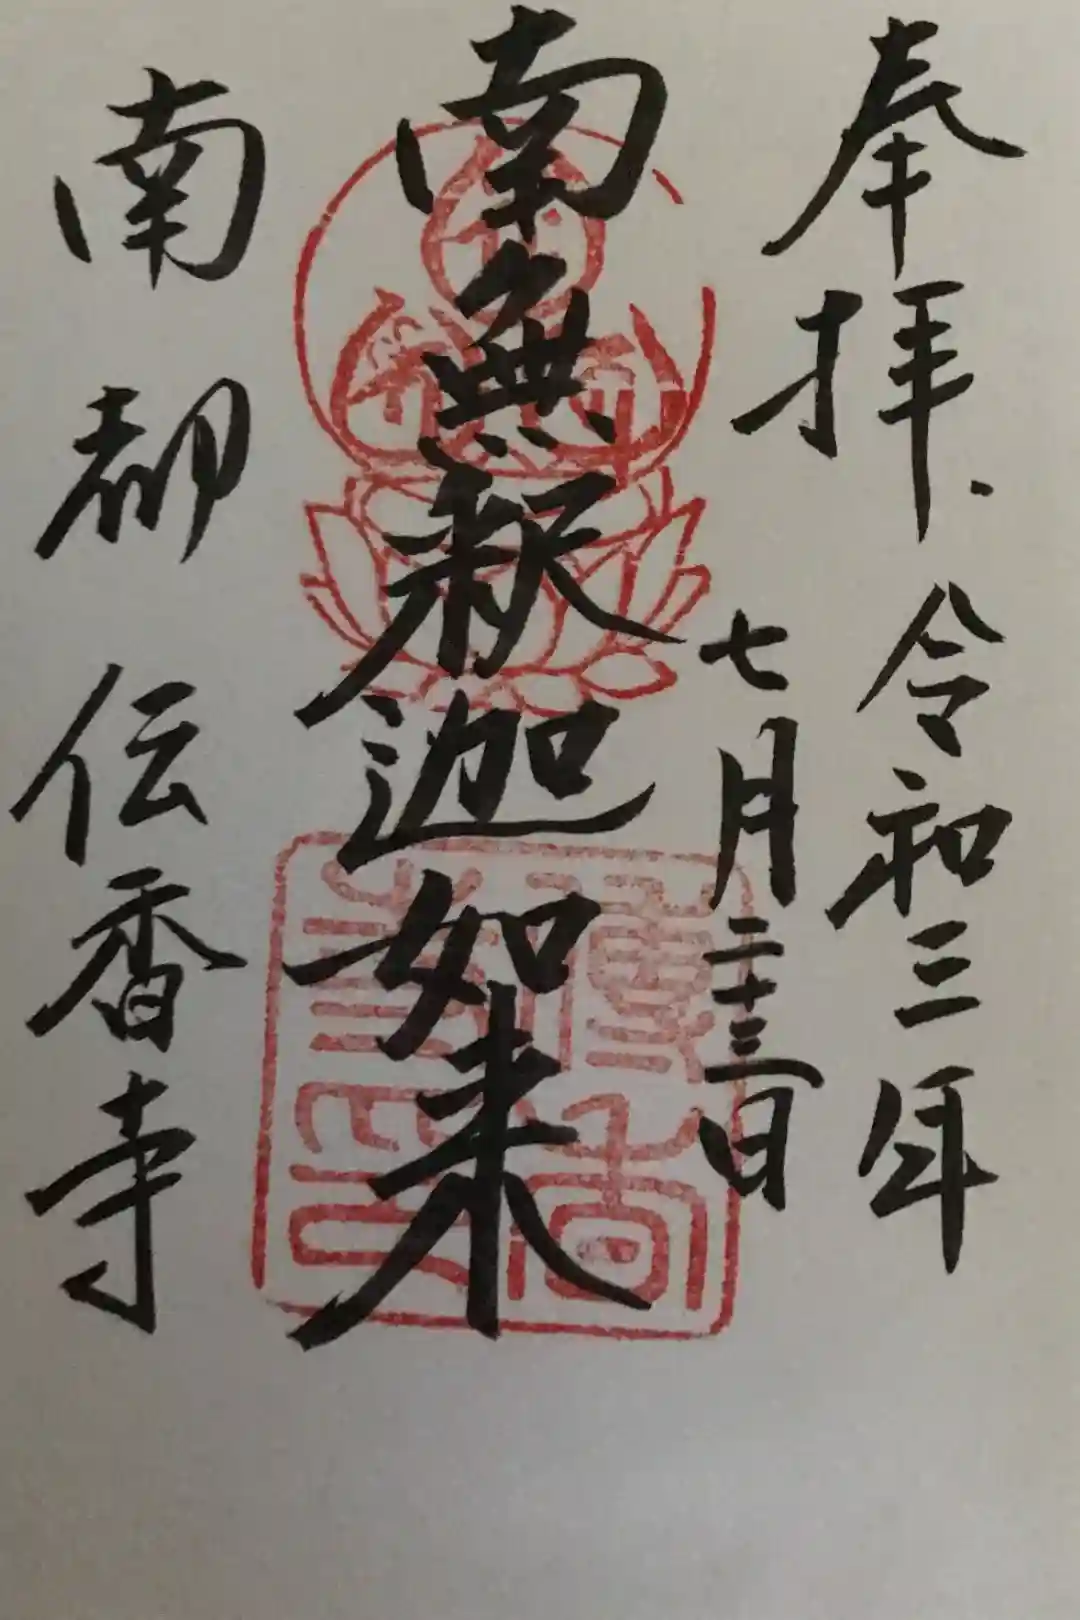 奉拝 令和三年
七月二十三日
南無釈迦如来
南都 伝香寺